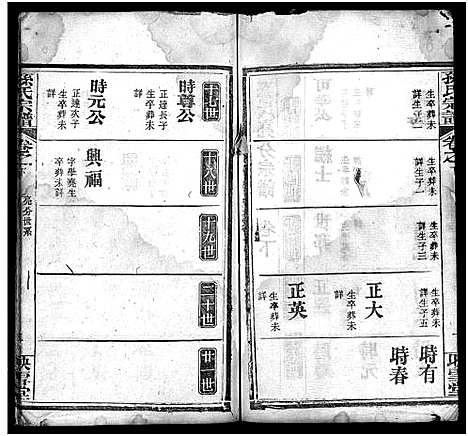 孫氏宗譜
卷之
生卒葬未
詳生子一
生卒葬未
詳生子一
生卒葬未
詳生子三
正大
生卒葬未
詳生子五
正英
生卒葬未
詳
時有
時春
映雪堂
十七世
時尊公
正達長子
生卒葬未
詳
時元公
正達次子
生卒葬未
詳
十八世
興福
字學堯生
卒葬未詳
十九世
二十世
廿一世
孫氏宗譜
卷之下
亮分世系
映雪堂